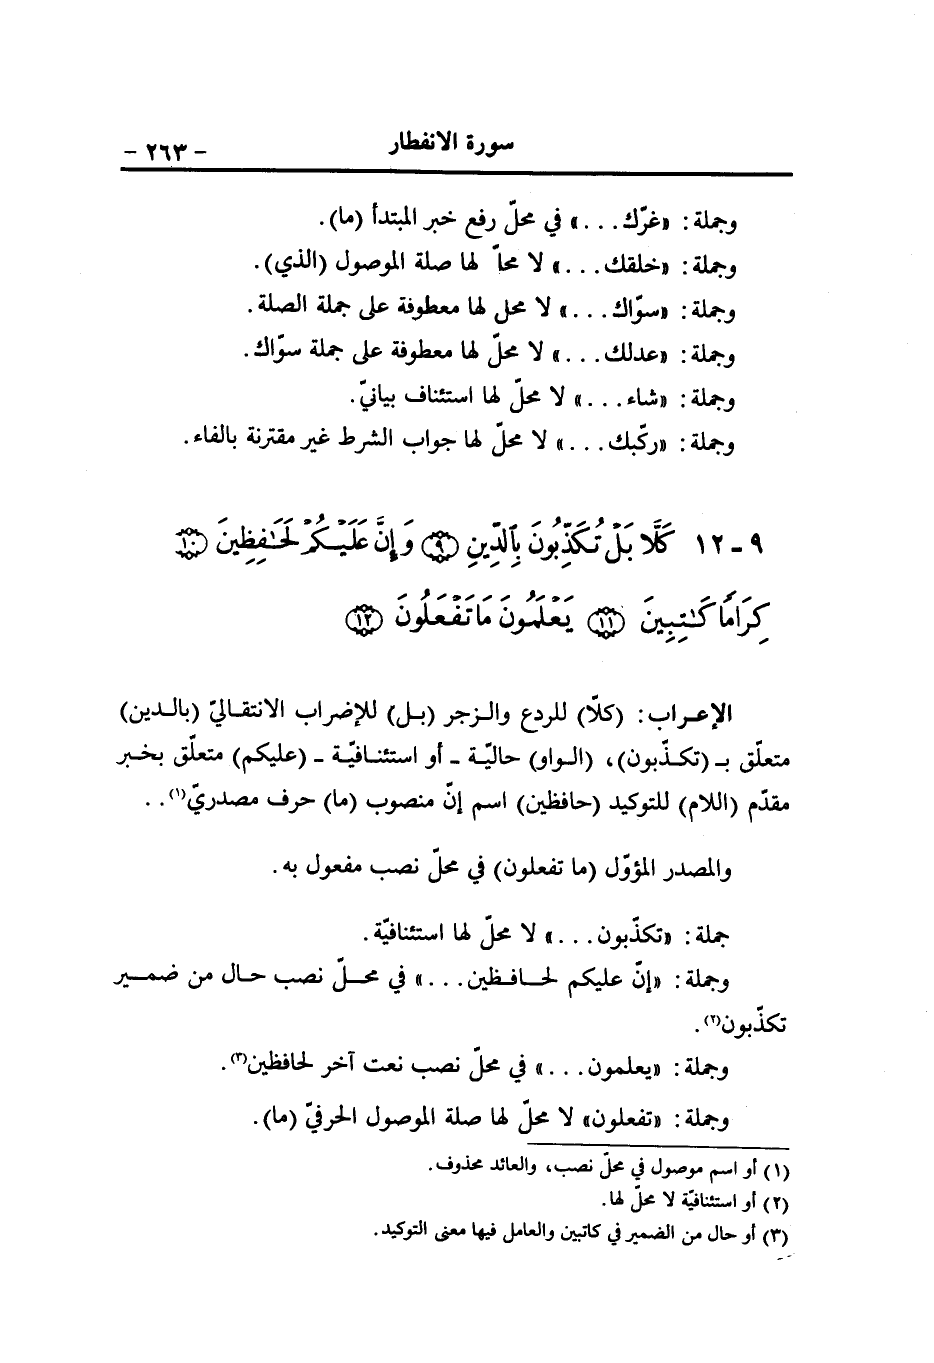 سورة الانفطار
- ٢٦٣ -
وجملة: «غرّك...» في محلّ رفع خبر المبتدأ (ما).
وجملة: «خلقك...» لا محلّ لها صلة الموصول (الذي).
وجملة: «سوّاك...» لا محل لها معطوفة على جملة الصلة.
وجملة: «عدلك...» لا محلّ لها معطوفة على جملة سوّاك.
وجملة: «شاء...» لا محلّ لها استئناف بيانيّ.
وجملة: «ركّبك...» لا محلّ لها جواب الشرط غير مقترنة بالفاء.
٩ - ١٢ كَلَّا بَلْ تُكَذِّبُونَ بِٱلدِّينِ ٩ وَإِنَّ عَلَيْكُمْ لَحَٰفِظِينَ ١٠
كِرَامًا كَٰتِبِينَ ١١ يَعْلَمُونَ مَا تَفْعَلُونَ ١٢
الإعراب: (كلّا) للردع والزجر (بل) للإضراب الانتقاليّ (بالدين)
متعلّق بـ (تكذّبون)، (الواو) حاليّة - أو استئنافيّة - (عليكم) متعلّق بخبر
مقدّم (اللام) للتوكيد (حافظين) اسم إنّ منصوب (ما) حرف مصدريّ(١)..
والمصدر المؤوّل (ما تفعلون) في محلّ نصب مفعول به.
جملة: «تكذّبون...» لا محلّ لها استئنافيّة.
وجملة: «إنّ عليكم لحافظين...» في محلّ نصب حال من ضمير
تكذّبون(٢).
وجملة: «يعلمون...» في محلّ نصب نعت آخر لحافظين(٣).
وجملة: «تفعلون» لا محلّ لها صلة الموصول الحرفيّ (ما).
(١) أو اسم موصول في محلّ نصب، والعائد محذوف.
(٢) أو استئنافيّة لا محلّ لها.
(٣) أو حال من الضمير في كاتبين والعامل فيها معنى التوكيد.